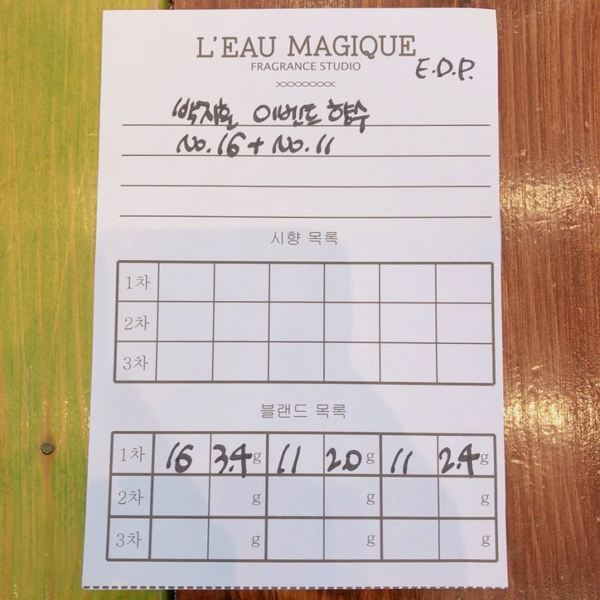 L'EAU MAGIQUE
FRAGRANCE STUDIO
E.D.P.
백지훈 이벤트 향수
No.16 + No.11
시향 목록
1차
2차
3차
블랜드 목록
1차 16 3.4g 11 2.0g 11 2.4g
2차 g g g
3차 g g g